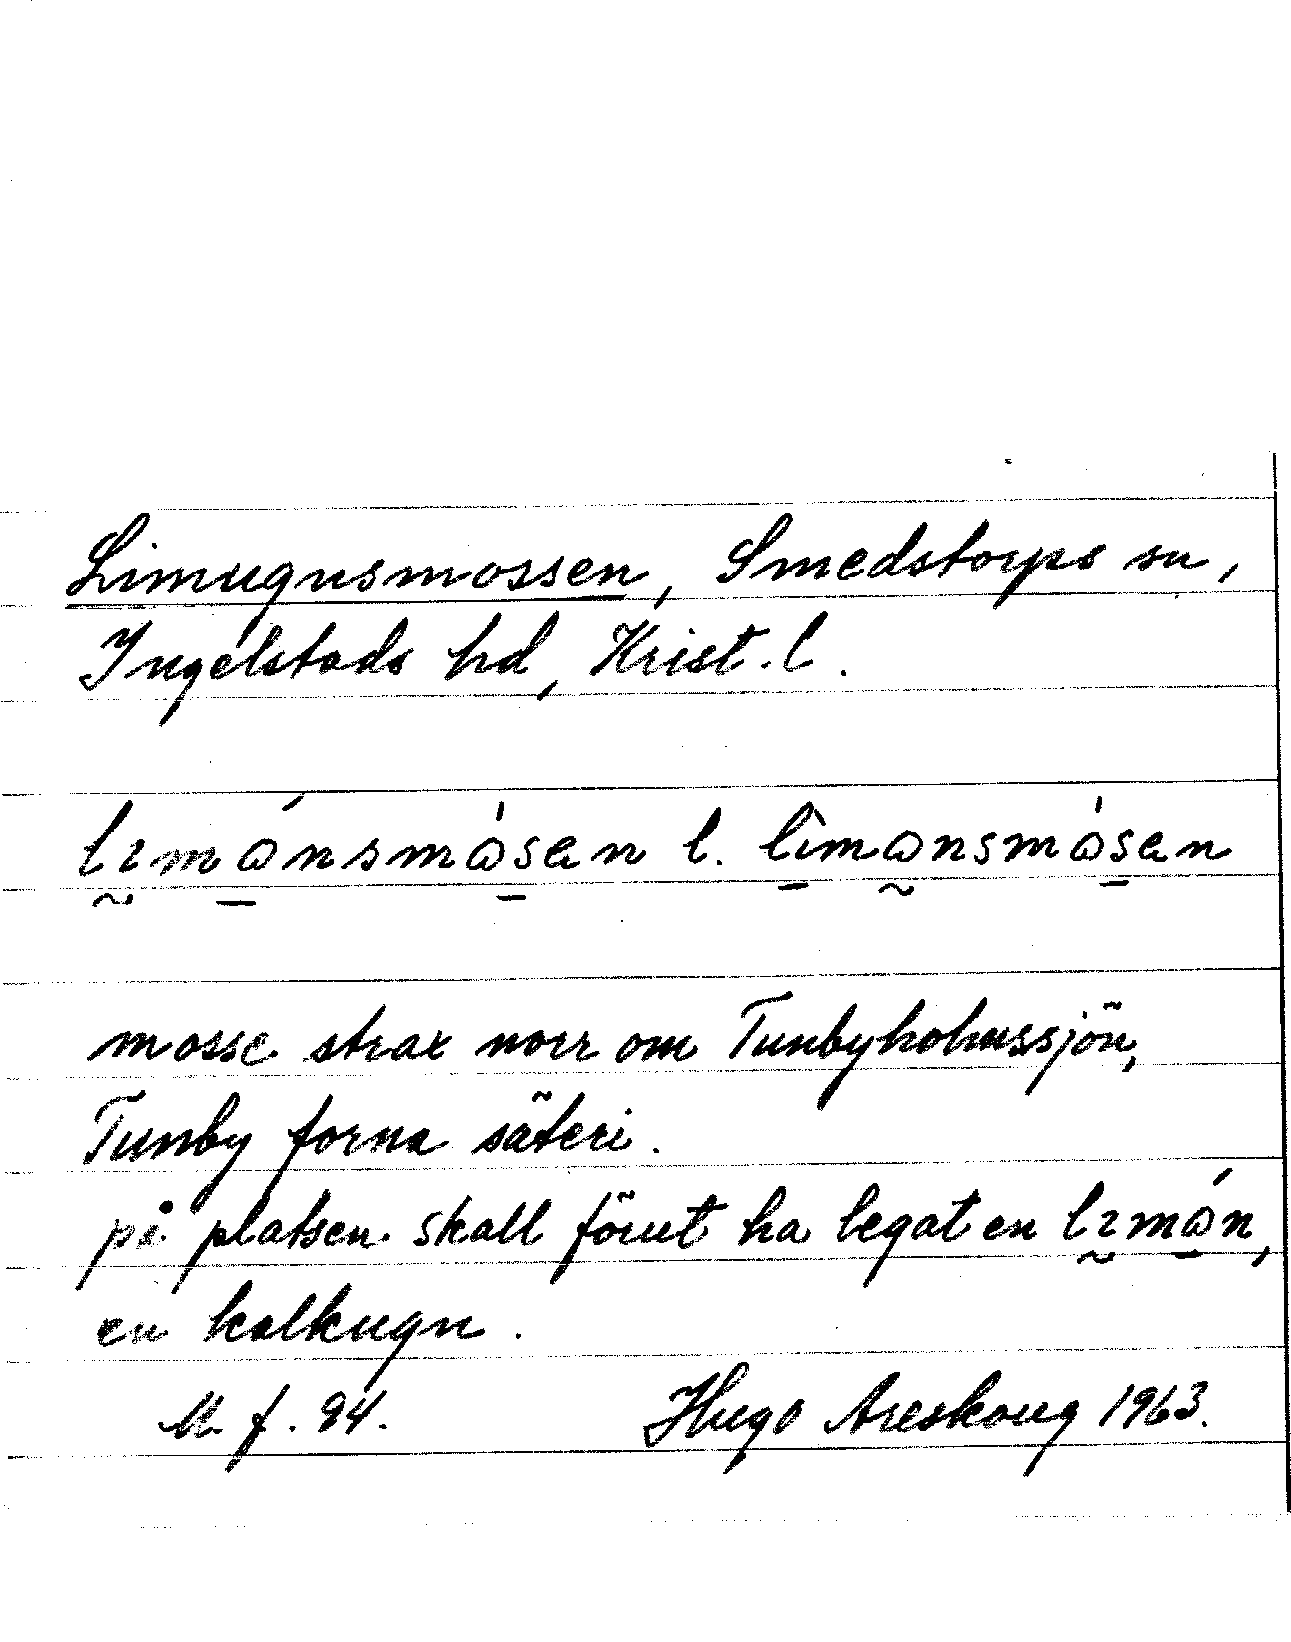 Limugnsmossen, Smedstorps sn,
Ingelstads hd, Krist. l.
lımånsmåsen l. limånsmåsen
mosse strax norr om Tunbyholmssjön,
Tunby forna säteri.
på platsen skall förut ha legat en lımån,
en kalkugn.
M. f. 94. Hugo Areskoug 1963.